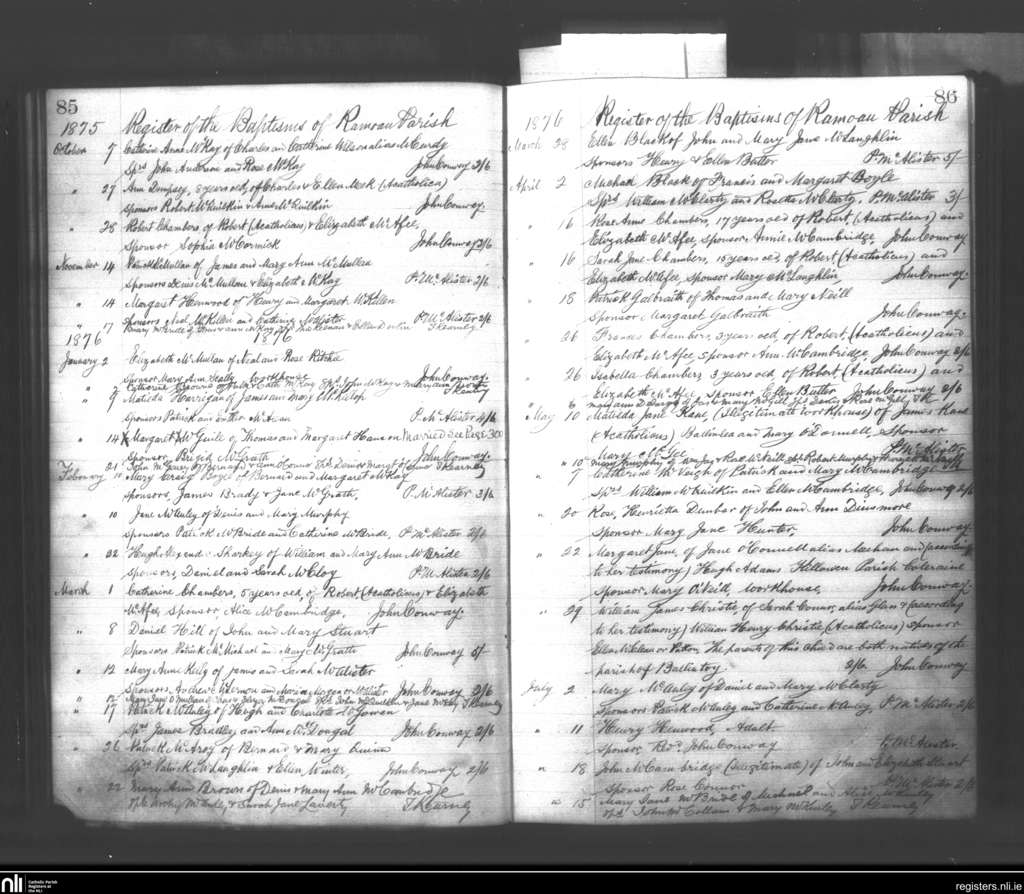 85
1875 Register of the Baptisms of Ramoan Parish
October 7 Catherine Anne McKay of Charles and Catherine Wilson alias McCurdy
Sprs John Anderson and Rose McKay John Conway 2/6
" 27 Ann Dempsey, 8 years old, of Charles & Ellen Meek (Acatholica)
Sponsors Robert McQuilkin & Anne McQuilkin John Conway
" 28 Robert Chambers, of Robert (Acatholicus) & Elizabeth McAfee,
Sponsor Sophia McCormick John Conway 2/6
November 14 McMullan of James and Mary Ann McMullan
Sponsors Denis McMullan & Elizabeth McKay P. McAlister 2/6
" 14 Margaret Henwood of Henry and Margaret McKillen
Sponsors Neal McKillen and Catherine McAlister P. McAlister 2/6
" 17 T Kearney
1876 1876
January 2 Elizabeth McMullan of Neal and Rose Ritchie
Sponsor Mary Ann Scally Workhouse John Conway
" 9 Catherine McKay Sps John McKay & Mary Ann T Kearney
" 9 Matilda Harrigan of James and Mary McKillop
Sponsors Patrick and Esther McAvan P. McAlister 4/6
" 14 Margaret McGuile of Thomas and Margaret Hanson (Married See Page 300
Sponsor, Brigid McGrath John Conway
" 21 John McGeary of Bernard & Anne Connor T Kearney
February 11 Mary Craig Boyle of Bernard and Margaret McKay
Sponsors, James Brady & Jane McGrath, P. McAlister 3/6
" 10 Jane McAuley of Denis and Mary Murphy
Sponsors Patrick McBride and Catherine McBride, P. McAlister 2/6
" 22 Hugh Sharkey of William and Mary Ann McBride
Sponsors, Daniel and Sarah McCloy P. McAlister 2/6
March 1 Catherine Chambers, 5 years old, of Robert (Acatholicus) & Elizabeth
McAfee, Sponsor, Alice McCambridge, John Conway
" 8 Daniel Hill of John and Mary Stuart
Sponsors Patrick McMichael and Mary McGrath John Conway 5/-
" 12 Mary Anne Kelly of James and Sarah McAlister
Sponsors, Andrew McKernon and McAlister John Conway 2/6
" 12 Mary Jane T Kearney
" 17 Patrick McAuley of Hugh and Charlotte McGowen
Sprs James Bradley and Anne McDougal John Conway 2/6
" 26 Patrick McAroy of Bernard & Mary Quinn
Sprs Patrick McLaughlin & Ellen Winter, John Conway 2/6
" 22 Mary Anne Brown of Denis & Mary Ann McCambridge
Sps Archy McAuley & Sarah Jane Laverty T Kearney
86
1876 Register of the Baptisms of Ramoan Parish
March 28 Ellen Black of John and Mary Jane McLaughlin
Sponsors Henry & Ellen Butler P. McAlister 5/-
April 2 Michael Black of Francis and Margaret Boyle
Sprs William McClarty and Rosetta McClarty. P. McAlister 3/
" 16 Rose Anne Chambers, 17 years old of Robert (Acatholicus) and
Elizabeth McAfee, Sponsor, Annie McCambridge, John Conway
" 16 Sarah Jane Chambers, 15 years old, of Robert (Acatholicus) and
Elizabeth McAfee, Sponsor Mary McLaughlin John Conway
" 18 Patrick Galbraith of Thomas and Mary Neill
Sponsor Margaret Galbraith John Conway
" 26 Francis Chambers, 9 years old, of Robert, (Acatholicus) and
Elizabeth McAfee, Sponsor Ann McCambridge, John Conway 2/6
" 26 Isabella Chambers 3 years old, of Robert (Acatholicus) and
Elizabeth McAfee, Sponsor Ellen Butler John Conway 2/6
" 6 Mary Ann
May 10 Matilda Jane Kane, (Illegitimate Workhouse) of James Kane
(Acatholicus) Ballinlea and Mary O'Donnell, Sponsor
Mary McGee P. McAlister
" 10 Mary Murphy
" 7 Catherine McVeigh of Patrick and Mary McCambridge
Sprs William McQuilkin and Ellen McCambridge, John Conway 2/6
" 20 Rose, Henrietta Dunbar of John and Ann Dinsmore
Sponsor Mary Jane Hunter, John Conway
" 22 Margaret Jane, of Jane O'Connell alias Meehan and (according
to her testimony) Hugh Adams Killowen Parish Coleraine
Sponsor Mary O'Neill, Workhouse, John Conway
" 29 William James Christie, of Sarah Connor, alias Glass & (according
to her testimony) William Henry Christie (Acatholicus) Sponsor
Ellen Wilson or Paton. The parents of this child are both natives of the
parish of Ballintoy. 2/6 John Conway
July 2 Mary McAuley of Daniel and Mary McClarty
Sponsors Patrick McAuley and Catherine McAuley P. McAlister 2/6
" 11 Henry Henwood, Adult.
Sponsor, Revd. John Conway P. McAlister
" 18 John McCambridge (Illegitimate) of John and Elizabeth Stuart
Sponsor Rose Connor. P. McAlister 2/6
" 15 Mary Jane McBride of Michael and Alice McAuley
Sps John McCollum & Mary McAuley T Kearney
nli Catholic Parish Registers at the NLI
registers.nli.ie